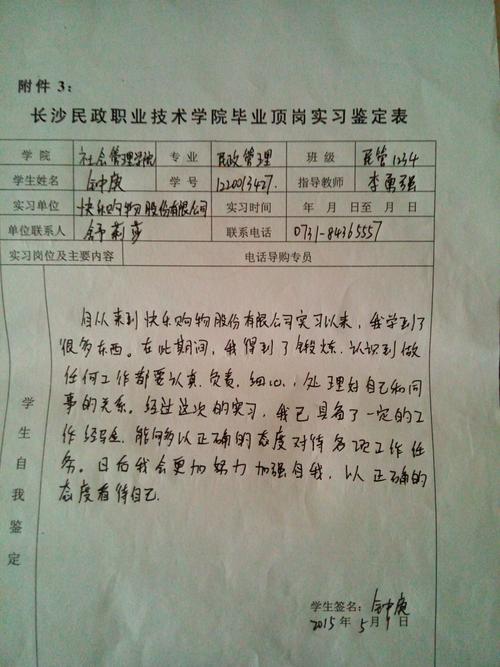 附件 3：
长沙民政职业技术学院毕业顶岗实习鉴定表
学院 社会管理学院 专业 民政管理 班级 民管1234
学生姓名 钟庚 学号 1220013427. 指导教师 李勇强
实习单位 快乐购物股份有限公司 实习时间 年 月 日至 月 日
单位联系人 舒莉莎 联系电话 0731-84365557
实习岗位及主要内容 电话导购专员
学生自我鉴定
自从来到快乐购物股份有限公司实习以来，我学到了
很多东西。在此期间，我得到了锻炼.认识到做
任何工作都要认真.负责.细心，处理好自己和同
事的关系。经过这次的实习，我已具备了一定的工
作经验，能够以正确的态度对待各项工作任
务。日后我会更加努力加强自我，以正确的
态度看待自己.
学生签名：
2015年 5月 日